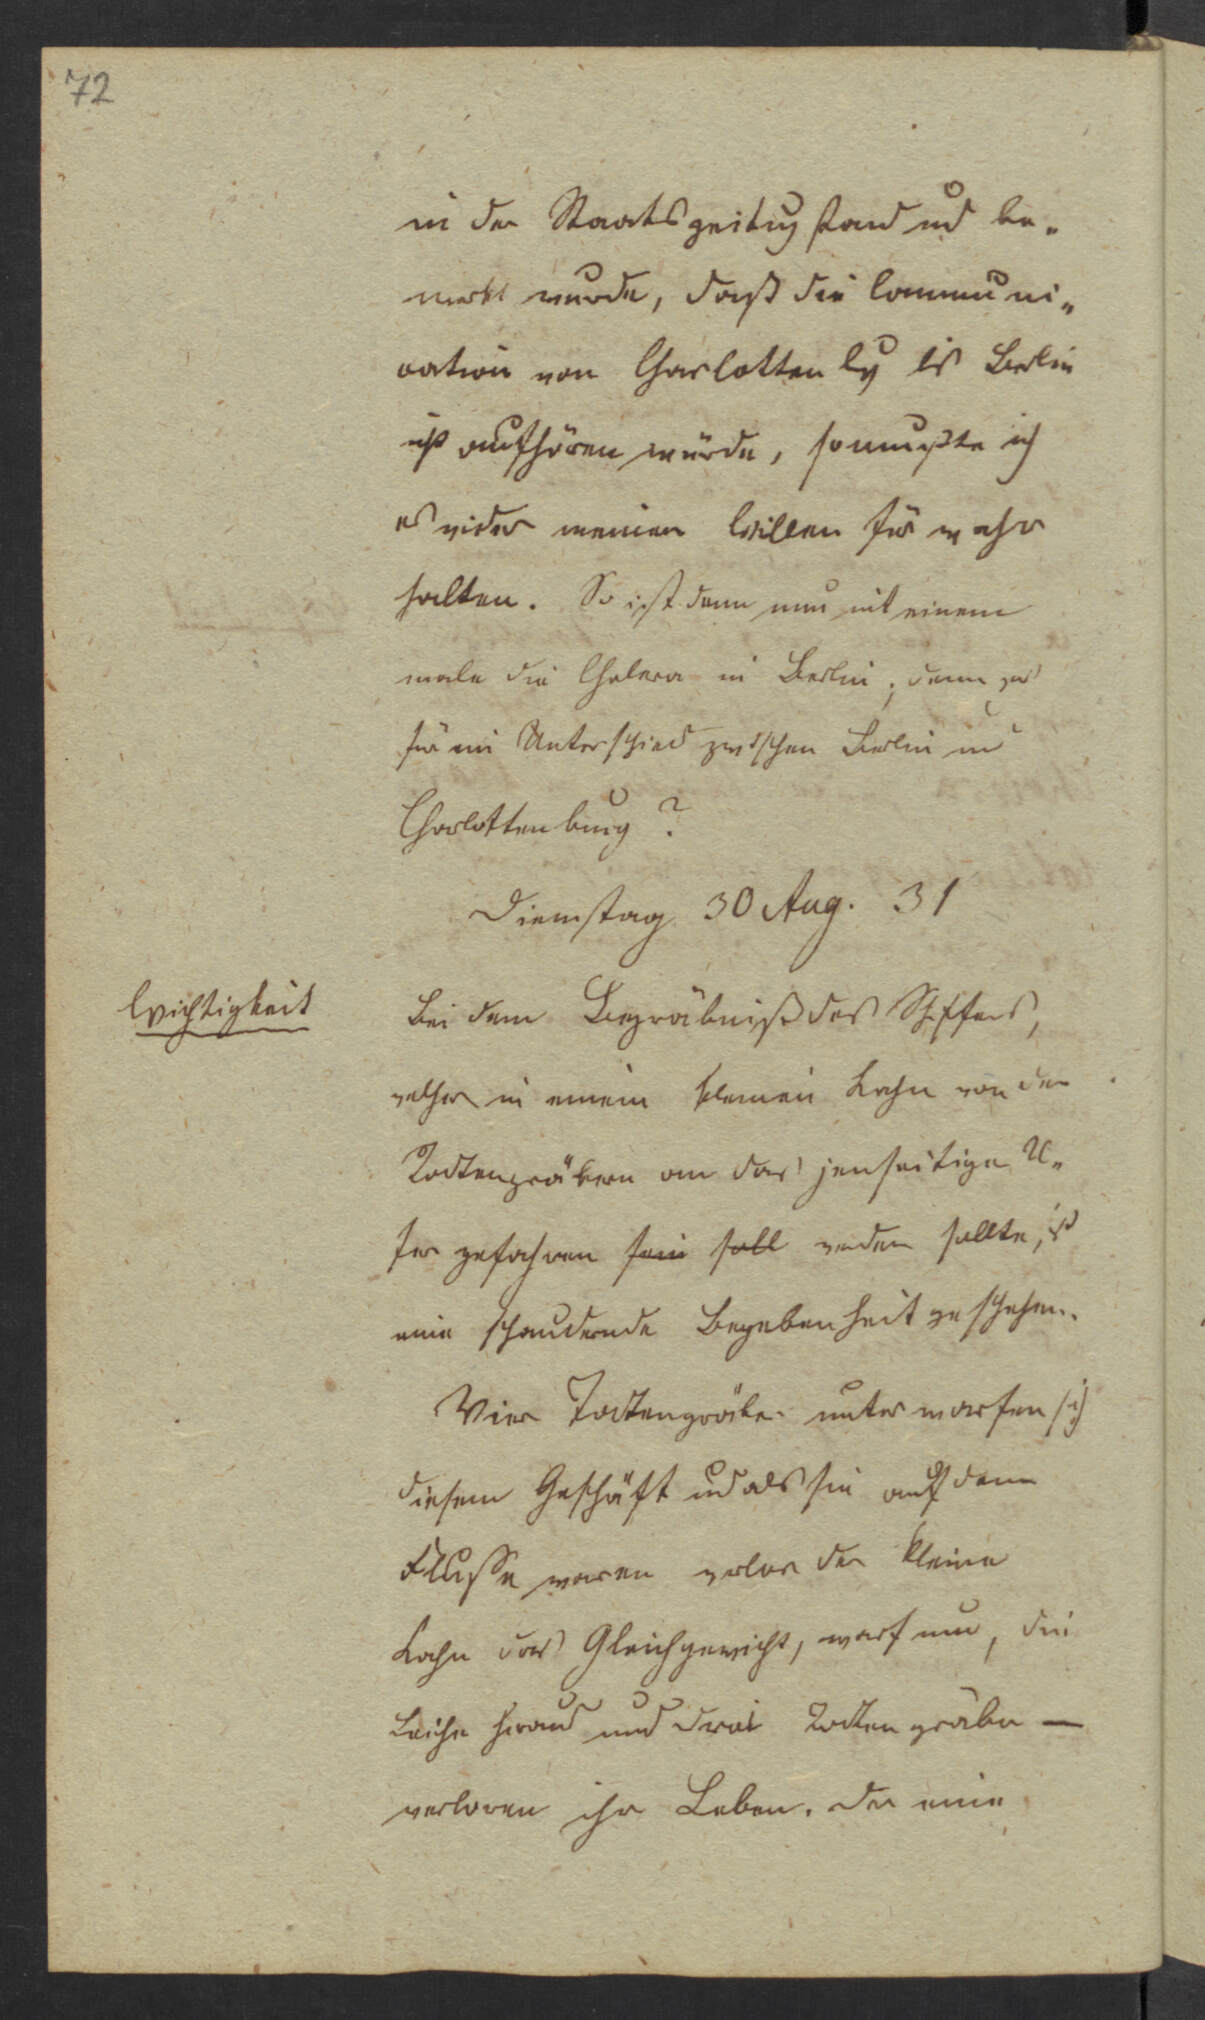 72
in der Staatszeitug stand ud be„
merkt wurde, daß die Communi„
cation von Charlottenbg bis Berlin
nicht aufhören würde, so mußte ich
es wider meinen Willen für wahr
halten. So ist denn nun mit einem
male die Cholera in Berlin; denn
für ein Unterschied zwischen Berlin und
Charlottenburg?
Dienstag 30 Aug. 31
Wichtigkeit
Bei dem Begräbniß des Schiffers,
welcher in einem kleinen Kahn von den
Todtengräbern an das jenseitige U„
fer gefahren sein soll werden sollte, ist
eine schaudernde Begebenheit geschehen.
Vier Todtengräber unterwarfen sich
diesem Geschäft ud als sie auf dem
Flusse waren verlor der kleine
Kahn das Gleichgewicht, warf nun, die
Leiche heraus und drei Todtengräber —
verloren ihr Leben. Der eine